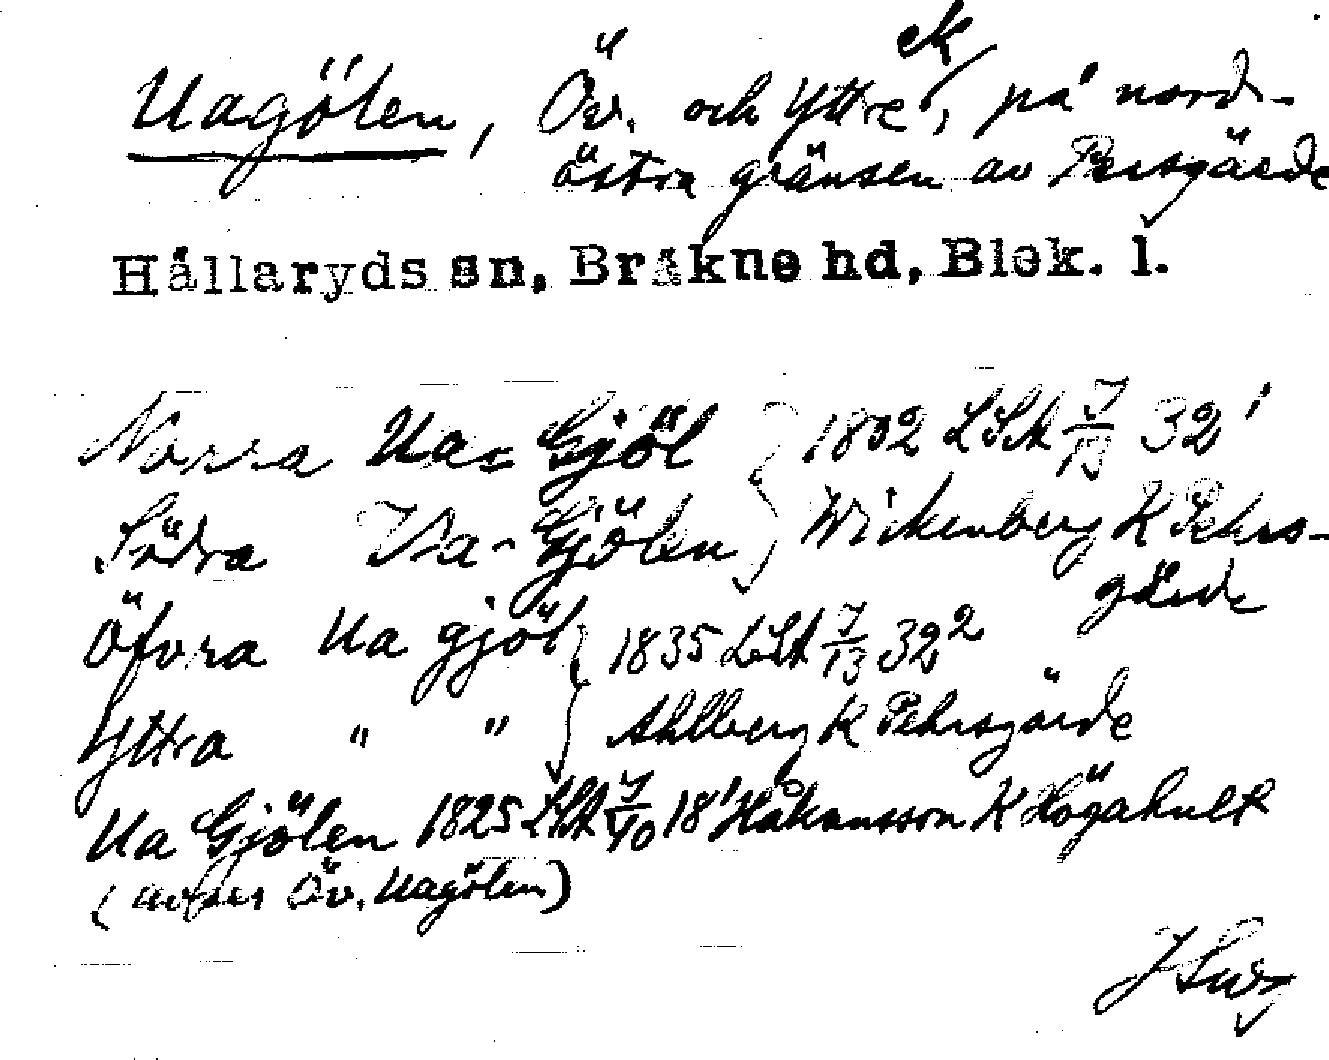 Uagölen, Öv. och Yttre ek, på nord-
östra gränsen av Persgärde
Hällaryds sn, Bräkne hd, Blek. l.
Norra Ua= Gjöl } 1802 LSA 7/13 32¹
Södra Ua- Gjölen } Wickenberg K Pehrs-
gärde
Öfvra Ua gjöl } 1835 LSA 7/13 32²
Yttra " " } Ahlberg K Pehrsgärde
Ua Gjölen 1825 LSA 7/10 18¹ Håkansson K Högahult
(avser Öv. Uagölen)